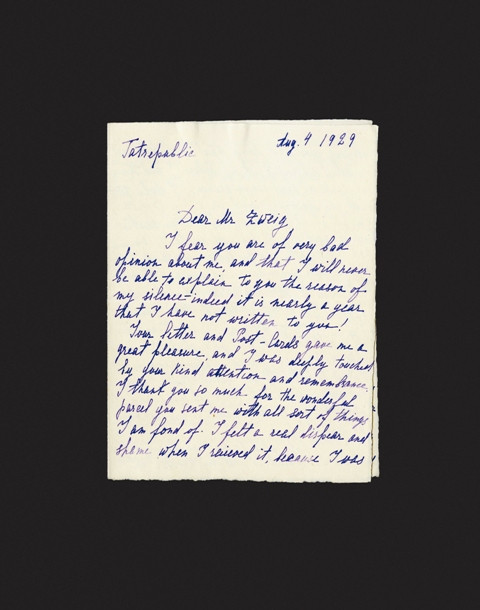 Tatrepublic
Aug. 4 1929
Dear Mr Zweig
I fear you are of very bad
opinion about me, and that I will never
be able to explain to you the reason of
my silence - indeed it is nearly a year
that I have not written to you!
Your letter and Post-Cards gave me a
great pleasure, and I was deeply touched
by your kind attention and remembrance.
I thank you so much for the wonderful
parcel you sent me with all sort of things
I am fond of. I felt a real dispear and
shame when I reieved it, because I was